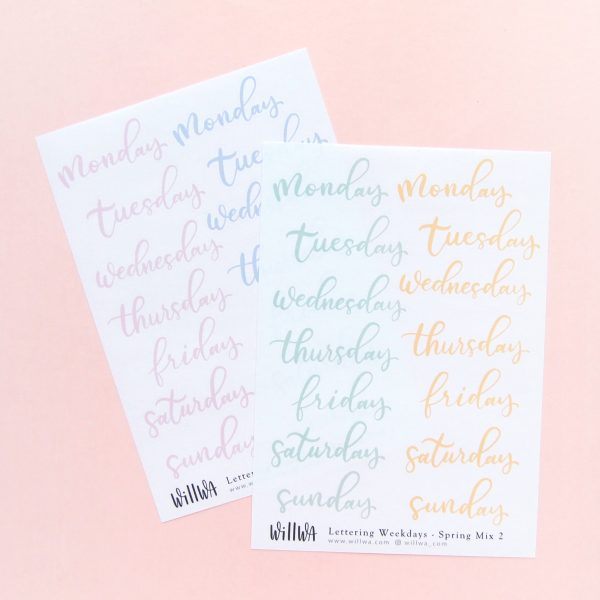 monday monday
tuesday tuesday
wednesday wedne
thursday th
friday
saturday
sunday
willwa Lettering
www.w
monday monday
tuesday tuesday
wednesday wednesday
thursday thursday
friday friday
saturday saturday
sunday sunday
willwa Lettering Weekdays - Spring Mix 2
www.willwa.com willwa_com